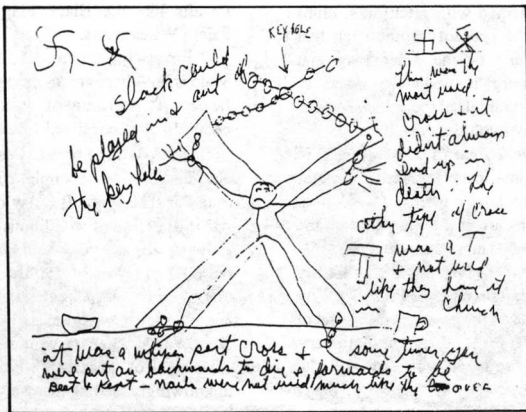 KEYHOLE
Slack could
be played in & out of
the key hole
This was the
most used
cross & it
didnt always
end up in
death. The
other type of cross
was a T
& not used
like they have it
in church
it was a part cross & some times you
were put on backwards to die & forwards to be
Beat & Kept – nails were not used much like the
OVER